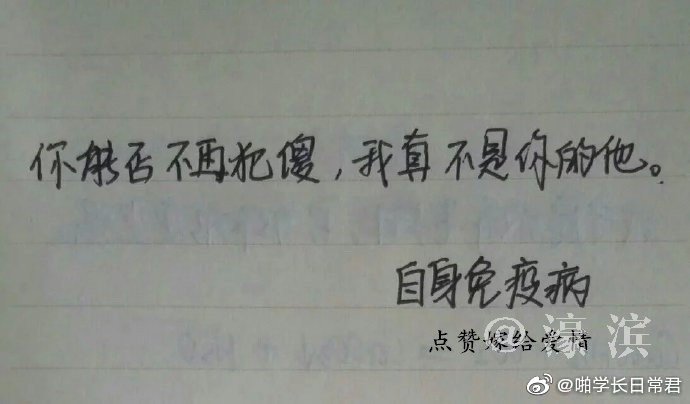 你能否不再犯傻，我真不是你的他。
自身免疫病
@濠滨
点赞嫁给爱情
@啪学长日常君